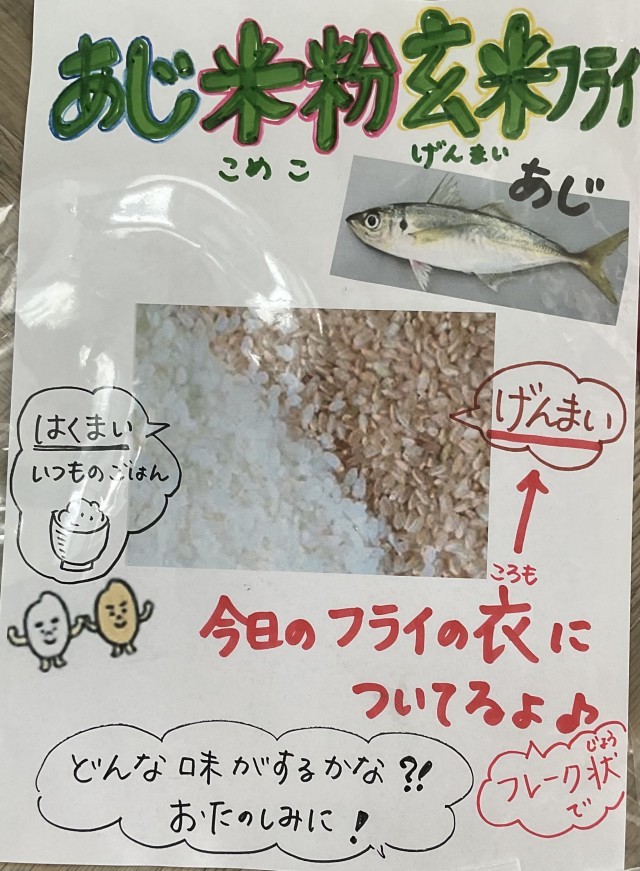 あじ米粉玄米フライ
こめこ
げんまい
あじ
はくまい
いつものごはん
げんまい
ころも
今日のフライの衣に
ついてるよ♪
どんな味がするかな?!
おたのしみに!
じょう
フレーク状
で